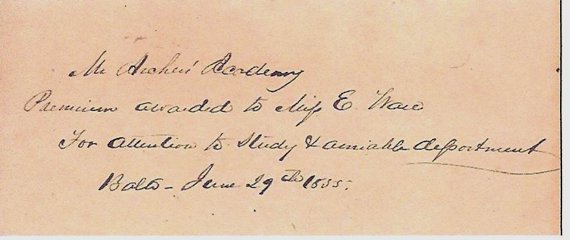 Mr Archers' Academy
Premium awarded to Miss E Ware
For attention to Study & amiable deportment
Balto - June 29th 1855.